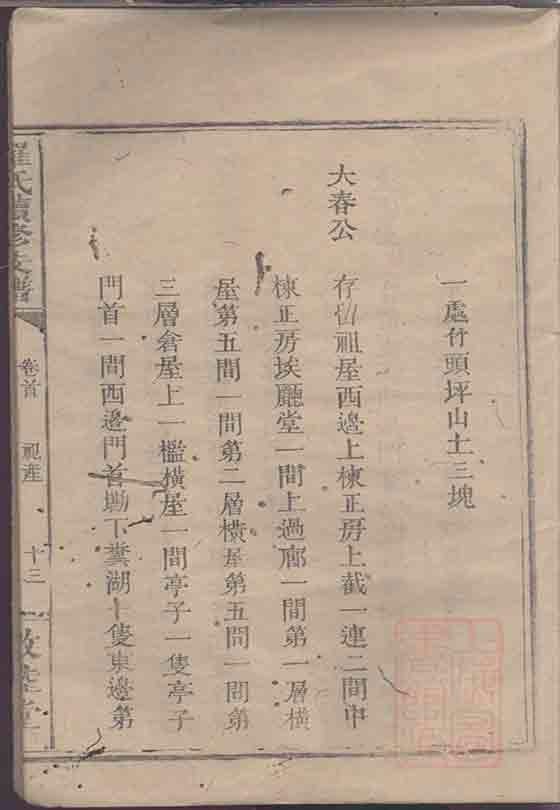 一處竹頭坪山土三塊
大春公 存留祖屋西邊上棟正房上截一連二間中
棟正房挨廳堂一間上過廊一間第一層橫
屋第五間一間第二層橫屋第五間一間第
三層倉屋上一檻橫屋一間亭子一隻亭子
門首一間西邊門首坳下糞湖一隻東邊第
羅氏續修支譜
卷首 祀產
十三
一敦堂